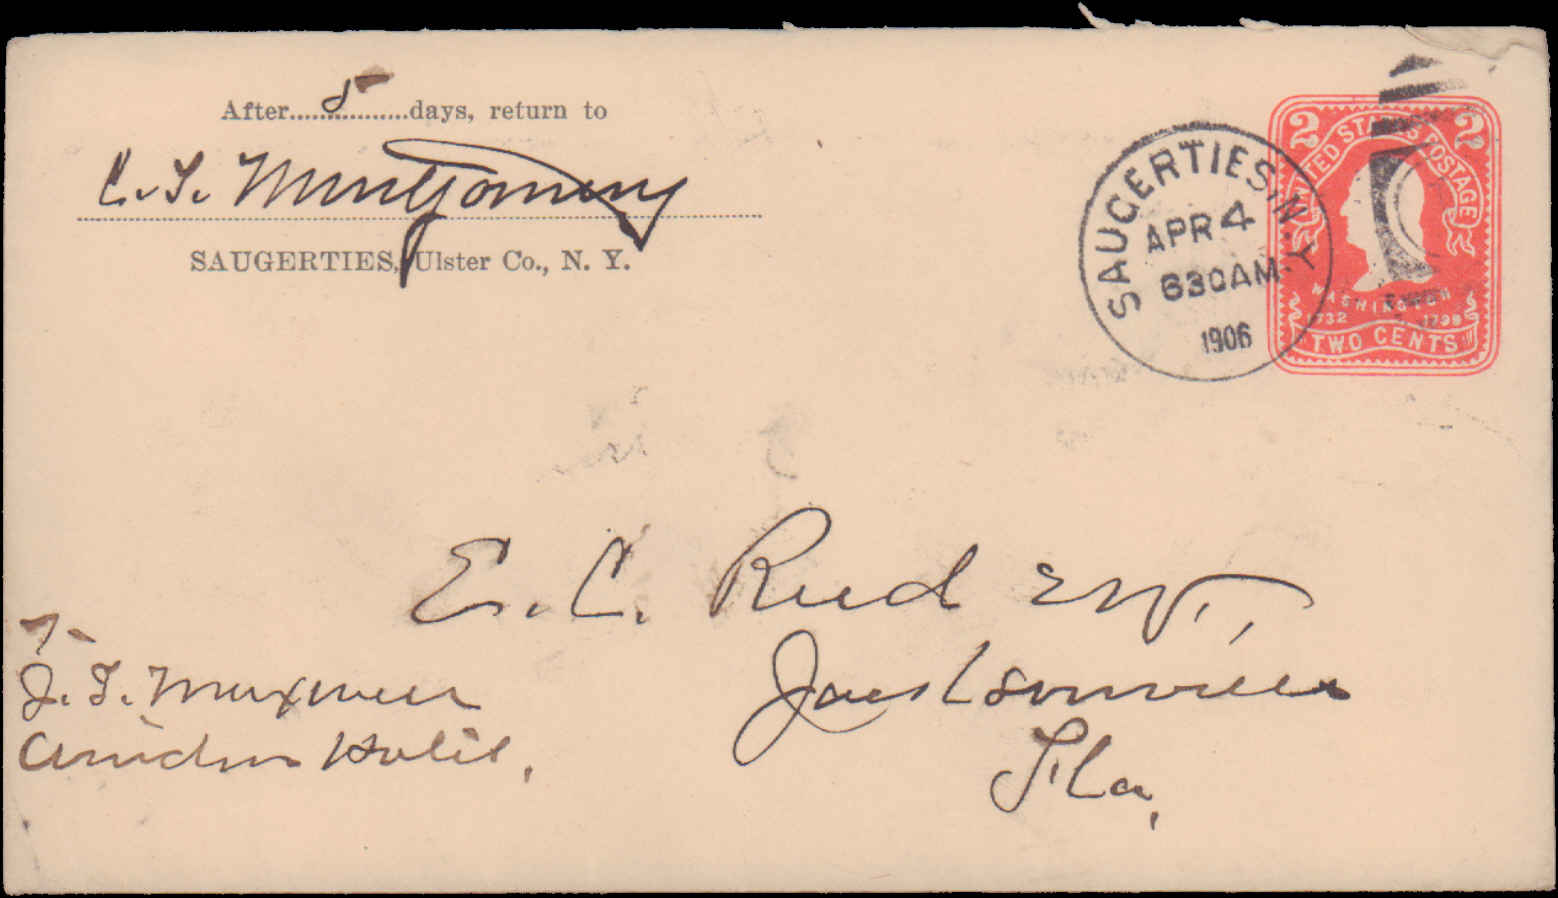 After 5 days, return to
C. T. Montgomery
SAUGERTIES, Ulster Co., N. Y.
SAUGERTIES. N.Y.
APR 4
630AM
1906
2 2
UNITED STATES POSTAGE
WASHINGTON
1732 1799
TWO CENTS
E. C. Reed Esq.,
Jacksonville
Fla.
J. T. Maxwell
Hotel.